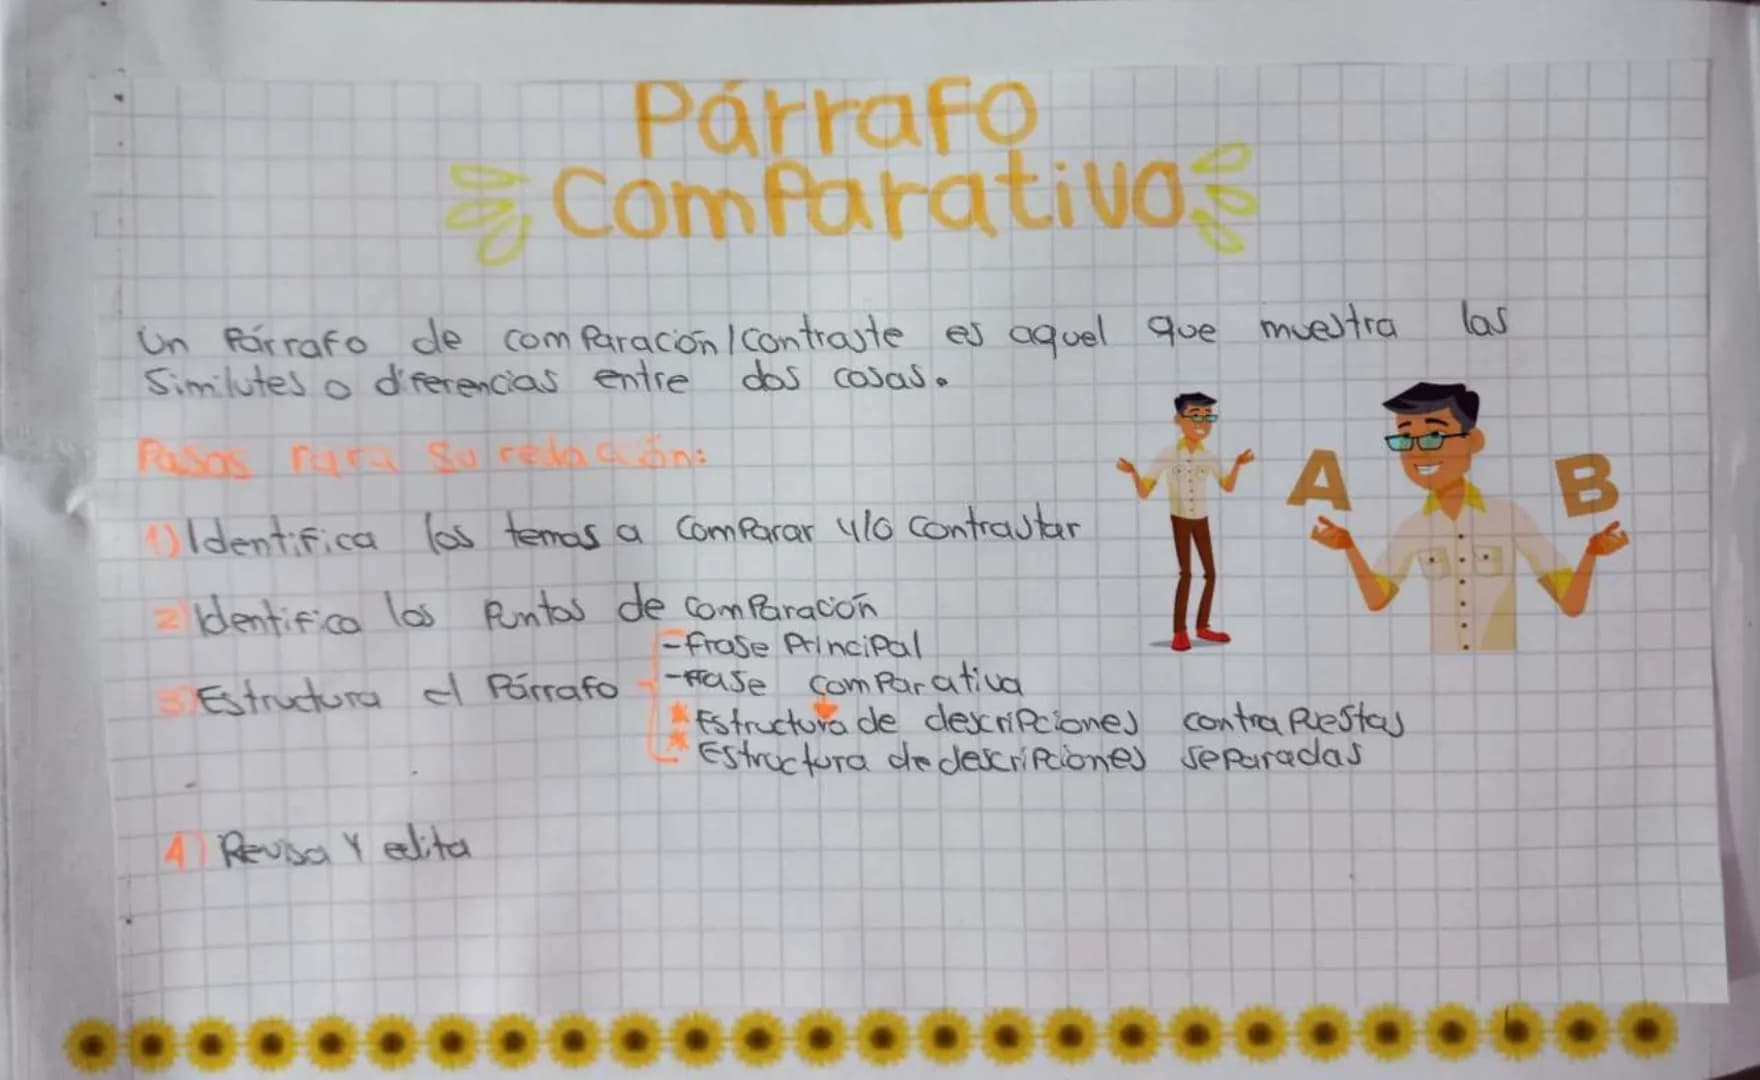 Párrafo
Comparativo
Un Párrafo de comparación/contraste es aquel que muestra las
Similutes o diferencias entre dos cosas.
Pasos para su redacción:
1) Identifica los temas a comparar y/o contrastar
A B
2) Identifica los Puntos de comparación
-frase Principal
3) Estructura el Párrafo -frase comparativa
* Estructura de descripciones contrapuestas
* Estructura de descripciones separadas
4) Revisa y edita